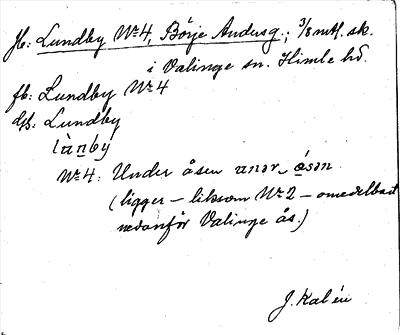 jb: Lundby No 4, Börje Andersg.; 3/8 mtl. sk.
i Valinge sn. Himle hd.
fb: Lundby No 4
dps: Lundby
lùnbý
No 4: Under åsen unər ǫ́sən
(ligger – liksom No 2 – omedelbart
nedanför Valinge ås.)
J. Kalén